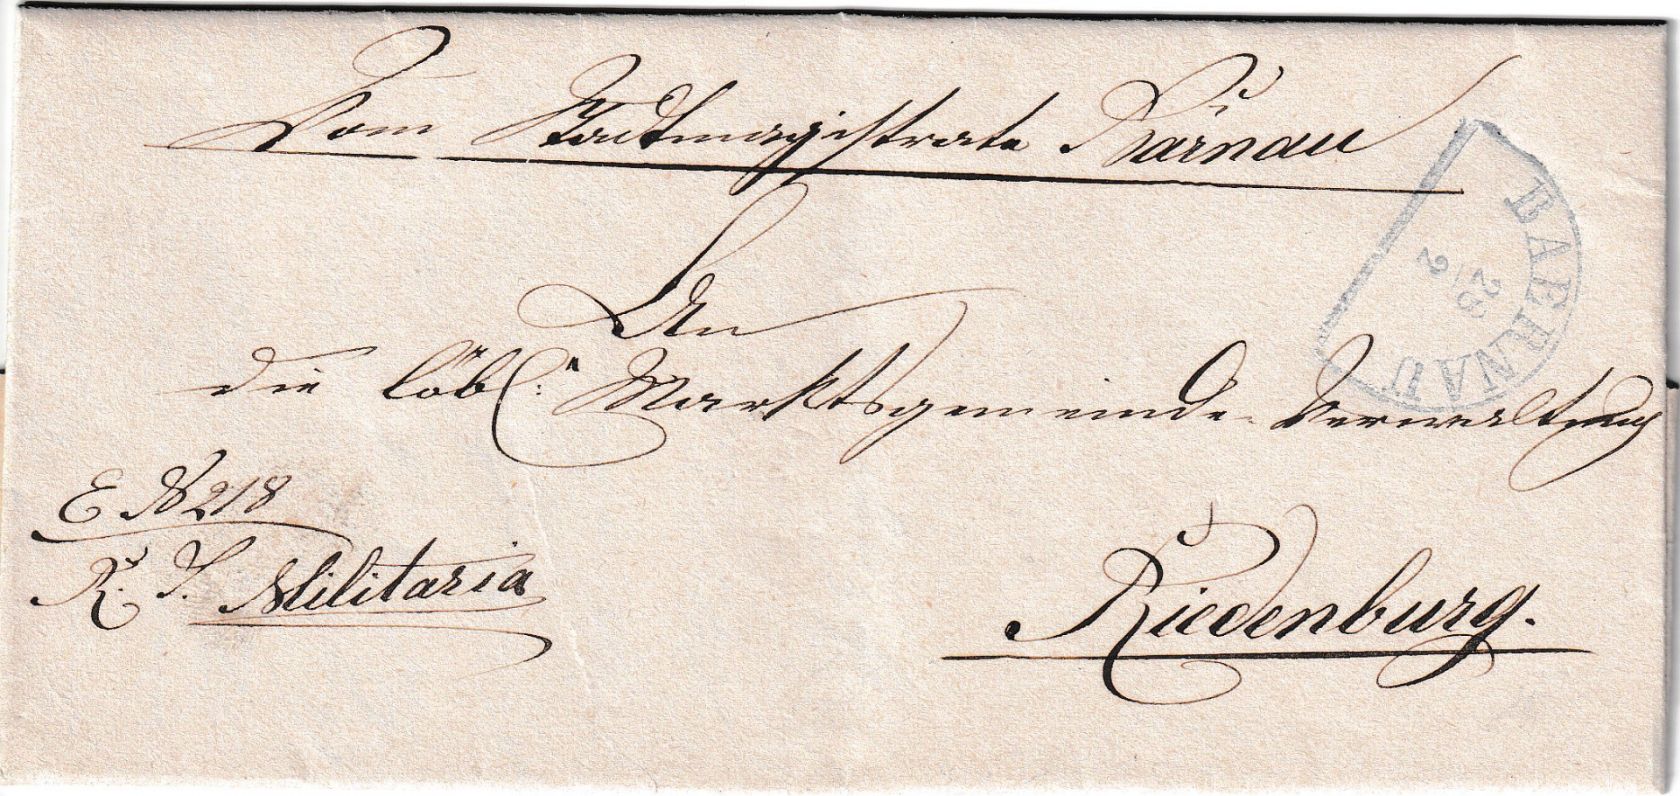 Vom Stadtmagistrate Bärnau
BAERNAU
28
2
An
die löbl: Marktsgemeinde-Verwaltung
E № 218
R. S. Militaria
Riedenburg.